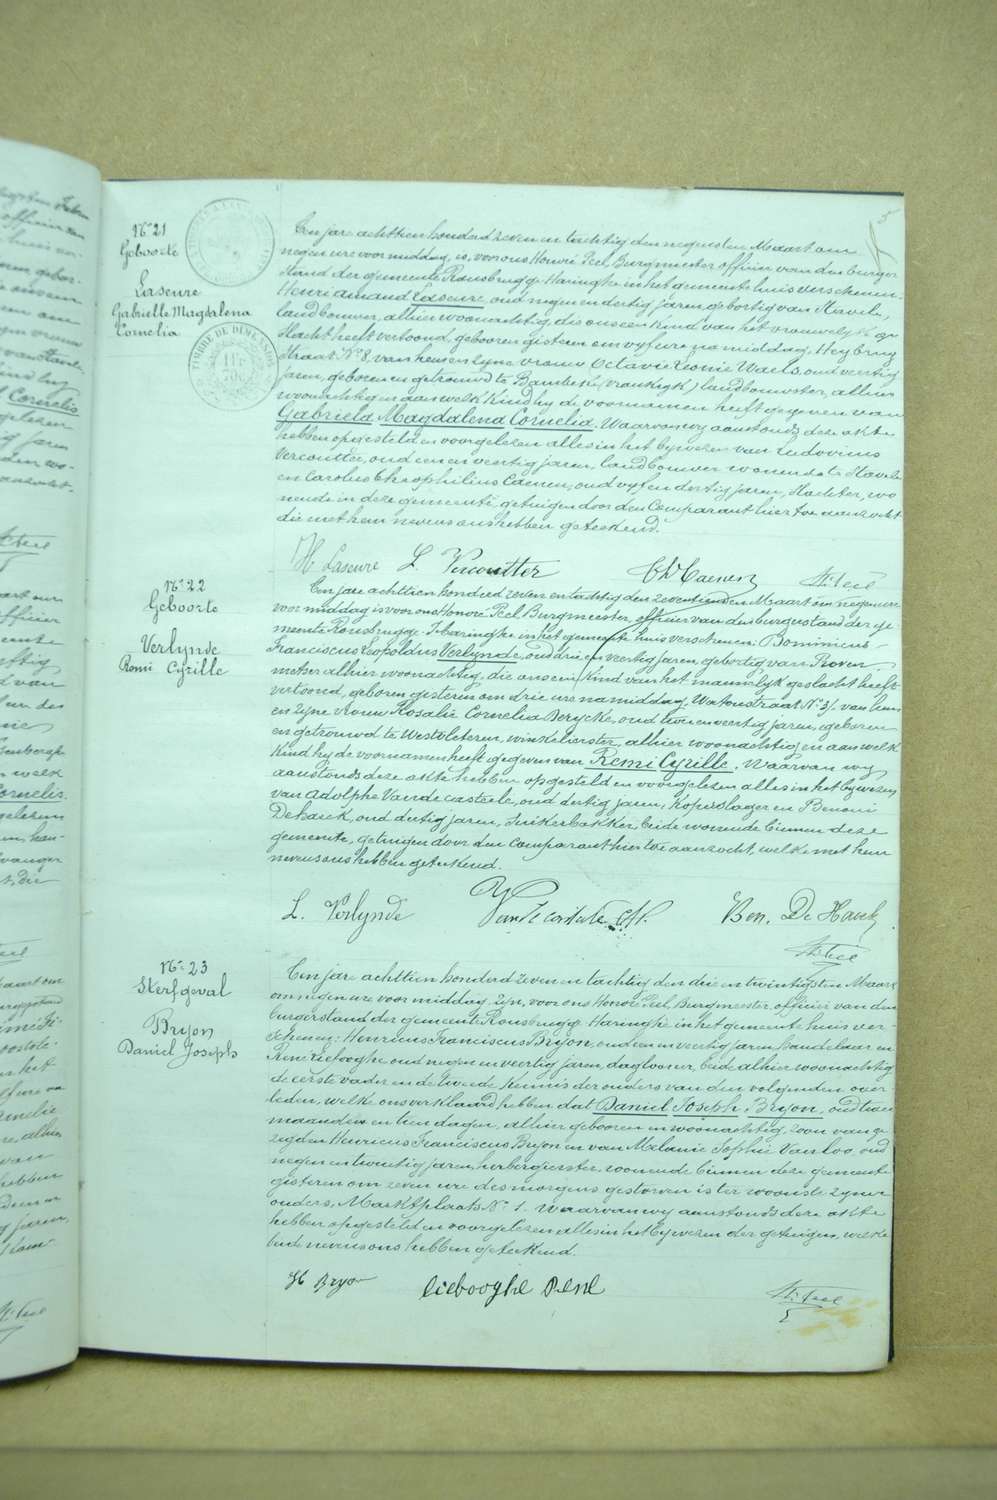 5
Nº 21
Geboorte
Laseure
Gabrielle Magdalena
Cornelia
TIMBRE DE DIMENSION
Een jare achttien honderd zeven en tachtig den negensten Maart om
negen ure voormiddag, is, voor ons Honoré Peel, Burgmeester officier van den burger
stand der gemeente Rousbrugge Haringhe in het gemeente huis verschenen:
Henri Amand Laseure, oud negen en dertig jaren, geboortig van Stavele,
landbouwer, alhier woonachtig, die ons een kind van het vrouwelyk ge-
slacht heeft vertoond, geboren gisteren om vyf ure namiddag, Heybrug
straat Nº 8, van hem en zyne vrouw Octavie Leonie Waels, oud veertig
jaren, geboren en getrouwd te Bambeke (Vrankryk) landbouwster, alhier
woonachtig en aan welk kind hy de voornamen heeft gegeven van
Gabriela Magdalena Cornelia. Waarvan wy aanstonds deze akte
hebben opgesteld en voorgelezen alles in het bywezen van Ludovicus
Vercoutter, oud een en veertig jaren, landbouwer wonende te Stavele
en Carolus Theophilius Caenen, oud vyf en dertig jaren, Slachter, wo
nende in deze gemeente getuigen door den Comparant hier toe aanzocht
die met hem nevens ons hebben geteekend.
H Laseure L. Vercoutter Ch Caenen H. Peel
Nº 22
Geboorte
Verlynde
Remi Cyrille
Een jare achttien honderd zeven en tachtig den zeventienden Maart om negen ure
voormiddag is voor ons Honoré Peel Burgmeester, officier van den burgerstand der ge-
meente Rousbrugge-Haringhe in het gemeente huis verschenen: Dominicus
Franciscus Leopoldus Verlynde, oud drie en veertig jaren, geboortig van Proven
metser alhier woonachtig, die ons een kind van het mannelyk geslacht heeft
vertoond, geboren gisteren om drie ure namiddag, Watoustraat Nº 31. van hem
en zyne vrouw Rosalie Cornelia Derycke, oud twee en veertig jaren, geboren
en getrouwd te Westvleteren, winkelierster, alhier woonachtig en aan welk
kind hy de voornamen heeft gegeven van Remi Cyrille. Waarvan wy
aanstonds deze akte hebben opgesteld en voorgelezen alles in het bywezen
van Adolphe Vande casteele, oud dertig jaren, Koperslager en Benoni
Dehauck, oud dertig jaren, Suikerbakker, beide wonende binnen deze
gemeente, getuigen door den Comparant hier toe aanzocht, welke met hem
nevens ons hebben geteekend.
L. Verlynde Vande casteele Ad. Ben. De Hauck
H. Peel
Nº 23
Sterfgeval
Bryon
Daniel Joseph
Een jare achttien honderd zeven en tachtig den drie en twintigsten Maart
om negen ure voormiddag. Zyn, voor ons Honoré Peel, Burgmeester officier van den
burgerstand der gemeente Rousbrugge Haringhe in het gemeente huis ver-
schenen: Henricus Franciscus Bryon, oud een en veertig jaren handelaar en
René Liebooghe oud negen en veertig jaren, daglooner, beide alhier woonachtig
de eerste vader en de tweede kennis der ouders van den volgenden over
leden, welke ons verklaard hebben dat Daniel Joseph Bryon, oud twee
maanden en tien dagen, alhier geboren en woonachtig, zoon van ge
zegden Henricus Franciscus Bryon en van Melanie Sophie Vanloo, oud
negen en twintig jaren, herbergierster, wonende binnen deze gemeente
gisteren om zeven ure des morgens gestorven is ter woonste zyner
ouders, Marktplaats Nº 1. Waarvan wy aanstonds deze akte
hebben opgesteld en voorgelezen alles in het bywezen der getuigen, welke
beide nevens ons hebben geteekend.
H Bryon Liebooghe René H. Peel